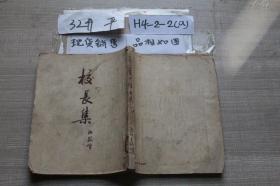 32开 平
H4-2-2(内)
现货销售
品相如图
校長集